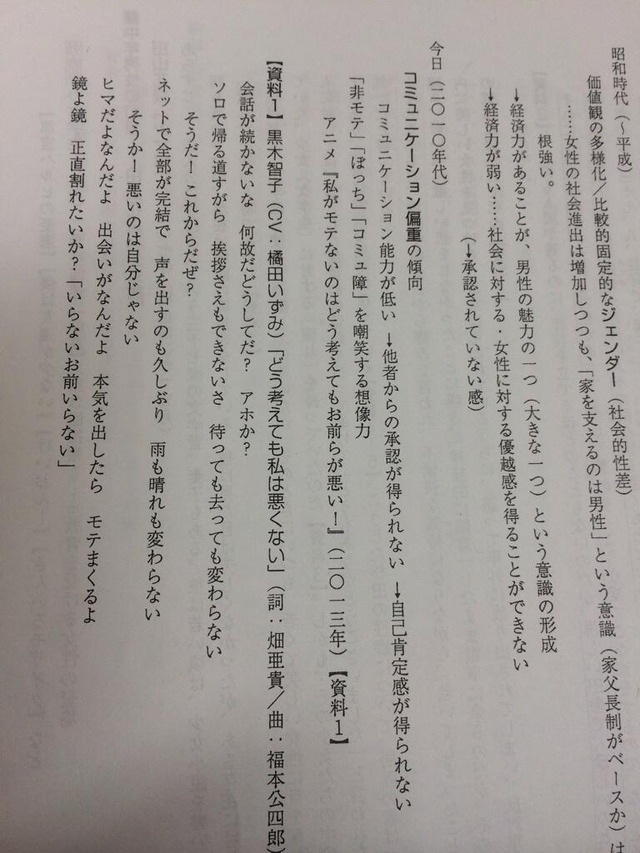 昭和時代(~平成)
価値観の多様化/比較的固定的なジェンダー(社会的性差)
……女性の社会進出は増加しつつも、「家を支えるのは男性」という意識(家父長制がベースか)は
根強い。
→経済力があることが、男性の魅力の一つ(大きな一つ)という意識の形成
→経済力が弱い……社会に対する・女性に対する優越感を得ることができない
(→承認されていない感)
今日(二〇一〇年代)
コミュニケーション偏重の傾向
コミュニケーション能力が低い→他者からの承認が得られない→自己肯定感が得られない
「非モテ」「ぼっち」「コミュ障」を嘲笑する想像力
アニメ『私がモテないのはどう考えてもお前らが悪い!』(二〇一三年)【資料1】
【資料1】黒木智子(CV:橘田いずみ)「どう考えても私は悪くない」(詞:畑亜貴/曲:福本公四郎)
会話が続かないな 何故だどうしてだ? アホか?
ソロで帰る道すがら 挨拶さえもできないさ 待っても去っても変わらない
そうだ!これからだぜ?
ネットで全部が完結で 声を出すのも久しぶり 雨も晴れも変わらない
そうか!悪いのは自分じゃない
ヒマだよなんだよ 出会いがなんだよ 本気を出したら モテまくるよ
鏡よ鏡 正直割れたいか?「いらないお前いらない」